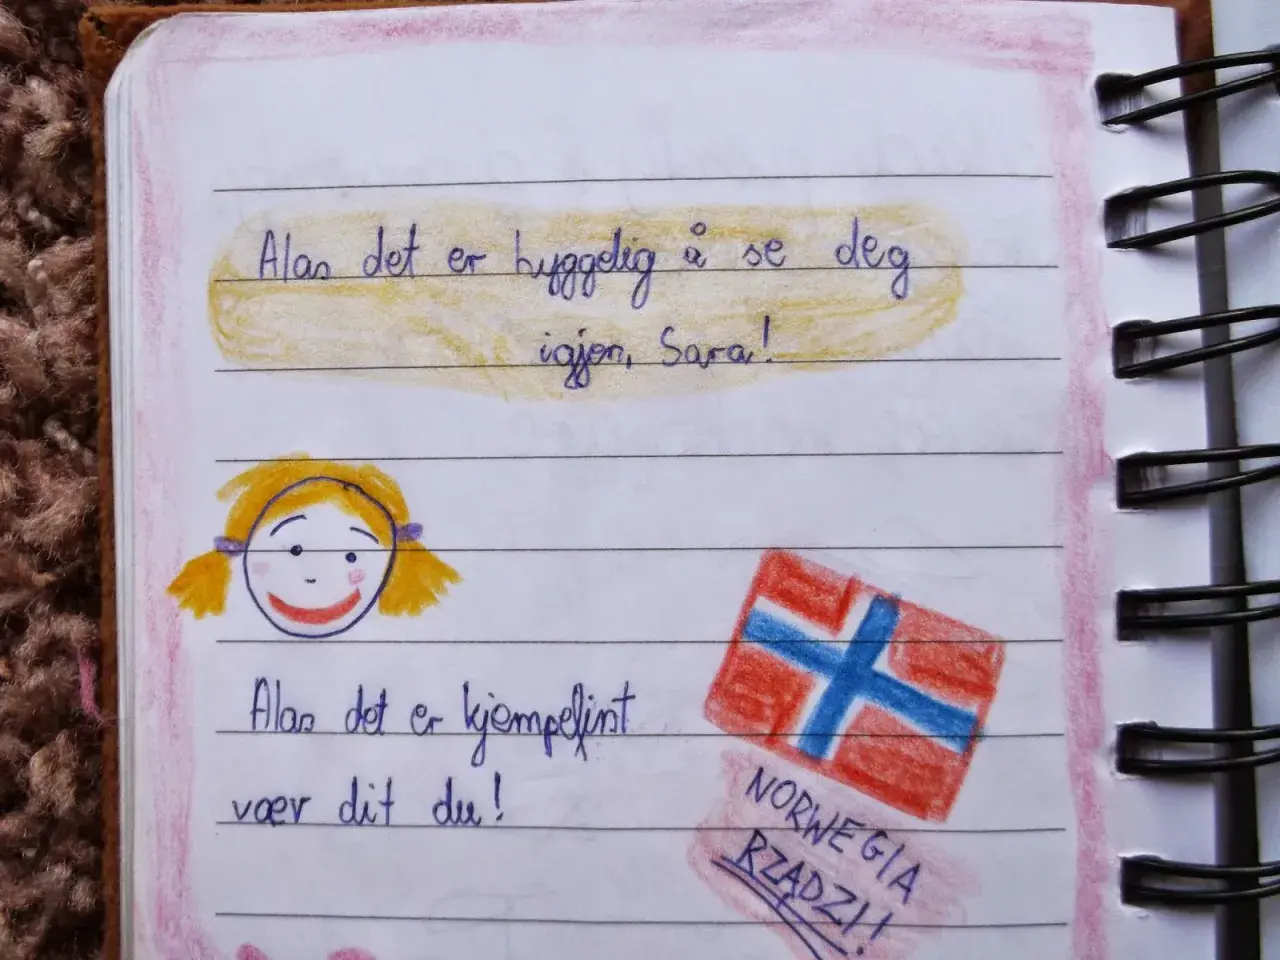 Alas det er hyggelig å se deg
igjen, Sara!
Alas det er kjempefint
vær dit du!
NORWEGIA
RZĄDZI!